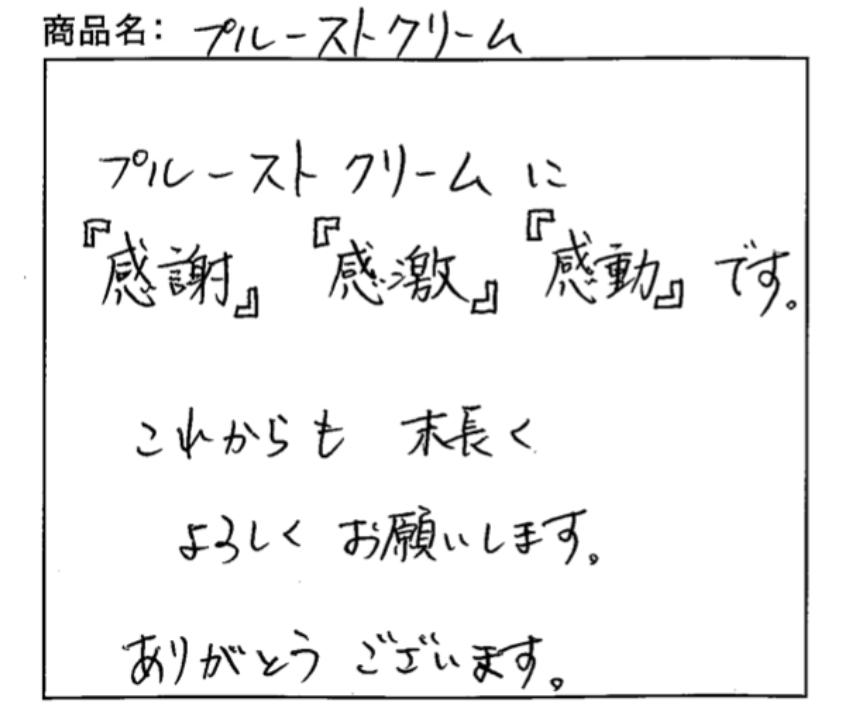 商品名: プルーストクリーム
プルーストクリームに
『感謝』『感激』『感動』です。
これからも 末長く
よろしく お願いします。
ありがとう ございます。